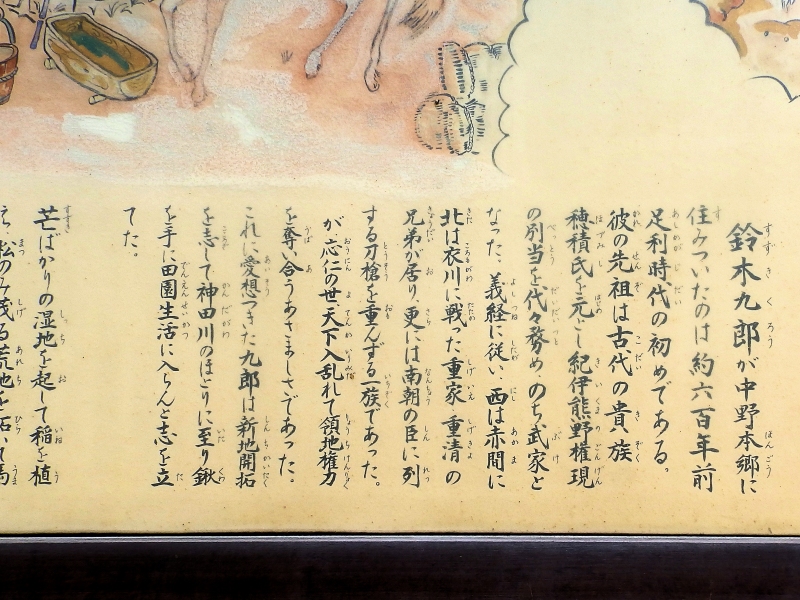 鈴木九郎が中野本郷に
住みついたのは約六百年前
足利時代の初めである。
彼の先祖は古代の貴族
穂積氏を元とし紀伊熊野権現
の別当を代々務め、のち武家と
なった、義経に従い、西は赤間に
北は衣川に戦った重家、重清の
兄弟が居り、更には南朝の臣に列
する刀槍を重んずる一族であった。
が、応仁の世、天下入乱れて領地権力
を奪い合うあさましさであった。
これに愛想つきた九郎は新地開拓
を志して神田川のほとりに至り鍬
を手に田園生活に入らんと志を立
てた。
芒ばかりの湿地を起して稲を植
え、松のみ茂る荒地を拓いて馬